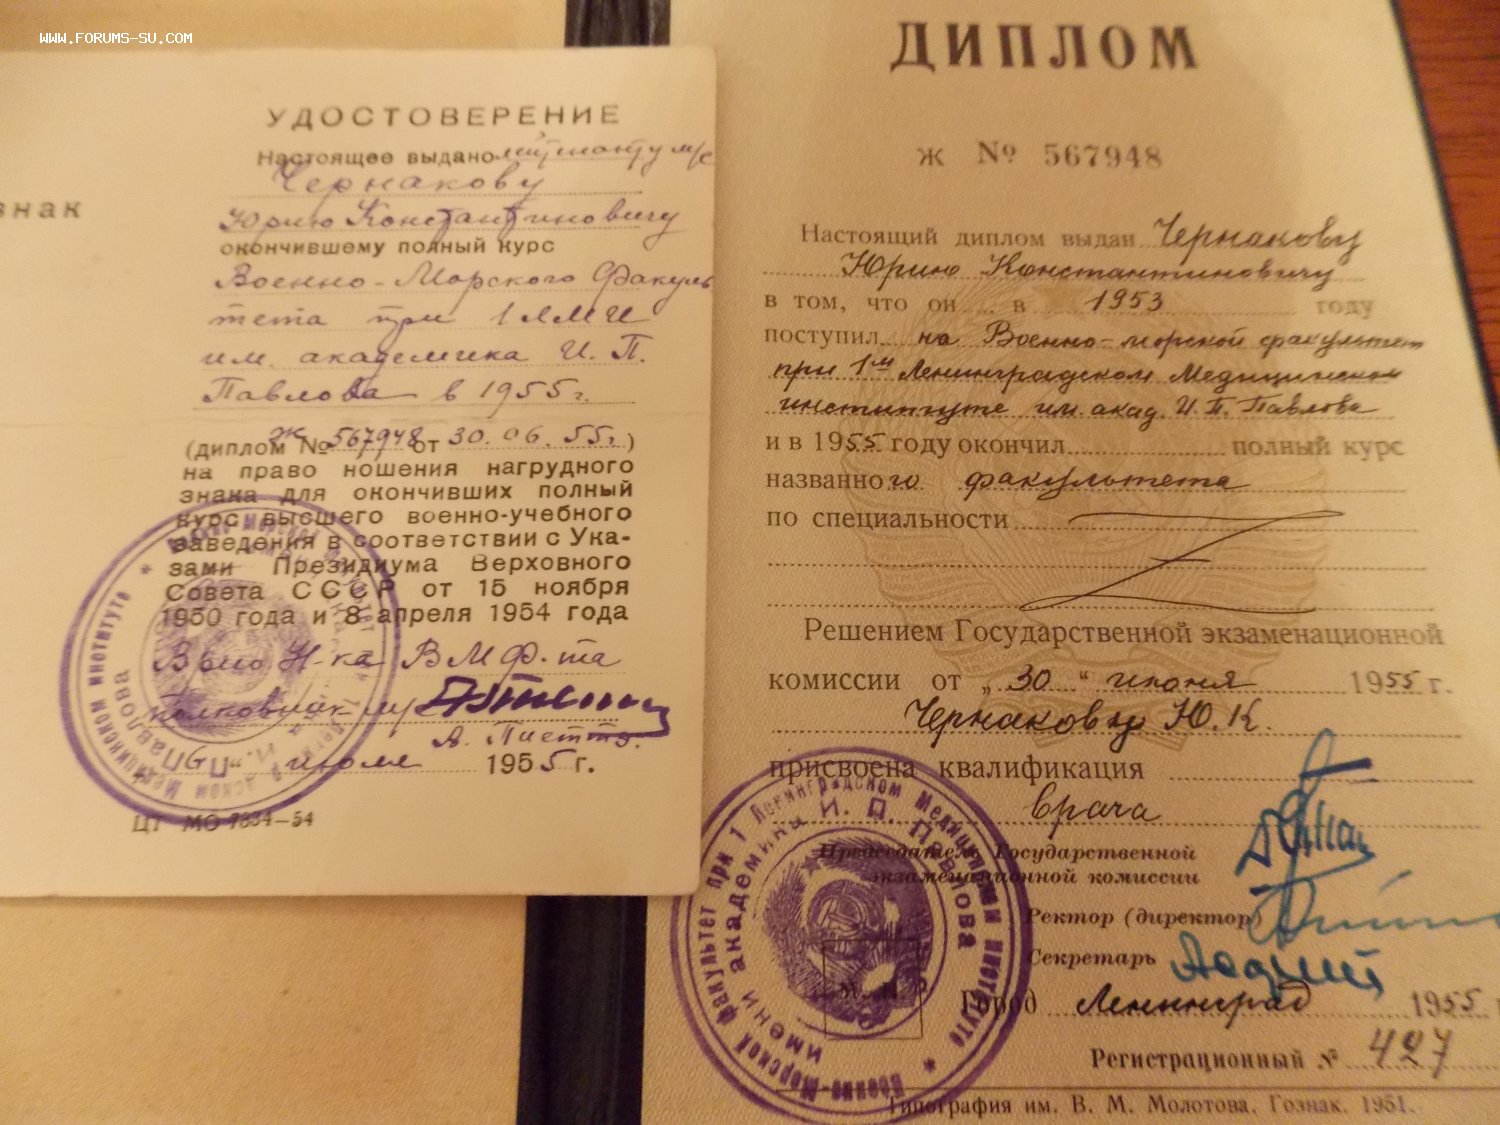 www.forums-su.com
знак
УДОСТОВЕРЕНИЕ
Настоящее выдано лейтенанту м/с
Чернакову
Юрию Константиновичу
окончившему полный курс
Военно-Морского Факуль
тета при 1 ЛМИ
им. академика И. П.
Павлова в 1955 г.
(диплом Ж № 567948 от 30.06.55 г.)
на право ношения нагрудного
знака для окончивших полный
курс высшего военно-учебного
заведения в соответствии с Ука-
зами Президиума Верховного
Совета СССР от 15 ноября
1950 года и 8 апреля 1954 года
Н-ка ВМФ-та
полковник м/с
июля 1955 г.
ЦТ МО 7834—54
ДИПЛОМ
Ж № 567948
Настоящий диплом выдан Чернакову
Юрию Константиновичу
в том, что он в 1953 году
поступил на Военно-морской факультет
при 1м Ленинградском Медицинском
институте им. акад. И. П. Павлова
и в 1955 году окончил полный курс
названного факультета
по специальности
Решением Государственной экзаменационной
комиссии от „30“ июня 1955 г.
Чернакову Ю. К.
присвоена квалификация
врача
Председатель Государственной
экзаменационной комиссии
Ректор (директор)
Секретарь
М. П.
Город Ленинград 1955
Регистрационный № 427
Типография им. В. М. Молотова. Гознак. 1951.
Военно-Морской факультет при 1 Ленинградском Медицинском институте
имени академика И. П. Павлова